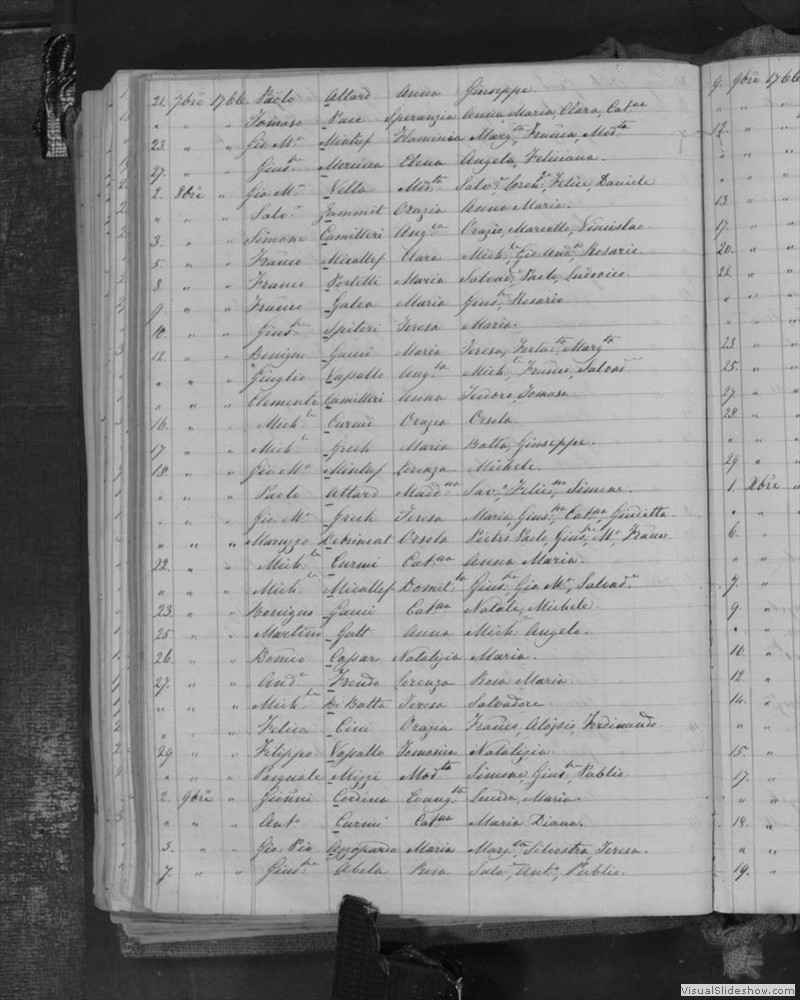 21. 7bre 1766. Paolo Attard Anna Giuseppe
" " " Tomaso Pace Speranzia Anna Maria, Clara, Cat.na
23. " " Gio M.a Mintuf Flaminia Marg.ta, Franca, Mod.ta
27. " " Gius.e Elena Angela, Feliciana.
2. 8bre " Gio M.a Vella Mod.ta Salv.e Felice, Daniele
" " " Salv.e Zammit Orazia Anna Maria.
3. " " Simone Camilleri Ang.ca Orazio, Marietta,
5. " " Franco Micallef Clara Mich.le Rosaria
8. " " Franco Portelli Maria Salvad, Paolo, Ludovico
9. " " Franco Galea Maria Gius.e, Rosario
10. " " Gius.e Spiteri Teresa Maria.
12. " " Benigno Gauci Maria Teresa, Marg.ta
" " " Giuglio Vassallo Ang.la Mich.le, Franco, Salvad
" " " Clemente Camilleri Anna Teodoro, Tomaso
16. " " Mich.le Curmi Orazia Orsola
17. " " Mich.le Grech Maria Batta, Giuseppe.
18. " " Gio M.a Mintuf Lorenza Michele.
" " " Paolo Attard Madd.na Sav.o, Felic.na, Simone.
" " " Gio M.a Grech Teresa Maria Gius.pa, Cat.na, Giulietta
" " " Maruzzo Debrincat Orsola Pietro Paolo, Gius.e, M.a, Franco
22. " " Mich.le Curmi Cat.na Anna Maria.
" " " Mich.le Micallef Domit.la Gius.e Gio M.a, Salvad.e
23. " " Benigno Gauci Cat.na Natale, Michele
25. " " Martino Galt Anna Mich. Angelo.
26. " " Romeo Caspar Natalizia Maria.
27. " " And.a Frendo Lorenza Rosa Maria
" " " Mich.le Di Batta Teresa Salvadore
" " " Felice Cini Orazia Franco, Aloysio, Ferdinando.
29. " " Filippo Vassallo Tomasica Natalizia.
" " " Pasquale Mizzi Mod.ta Simone Gius.e, Publio
2. 9bre " Gionni Cordina Evang.ta Maria.
" " " Ant.o Curmi Cat.na Maria Diana.
3. " " Gio Pio Azzopardo Maria Marg.ta, Silvestra, Teresa.
7. " " Gius.e Abela Rosa Salv, Ant.o, Publio.
9. 9bre 1766
" "
12. "
" "
13. "
17. "
20. "
22. "
" "
" "
23. "
25. "
27. "
28. "
" "
29. "
1. Xbre "
" "
6. "
" "
7. "
9. "
" "
10. "
12. "
14. "
" "
15. "
17. "
" "
18. "
" "
19. "
VisualSlideshow.com